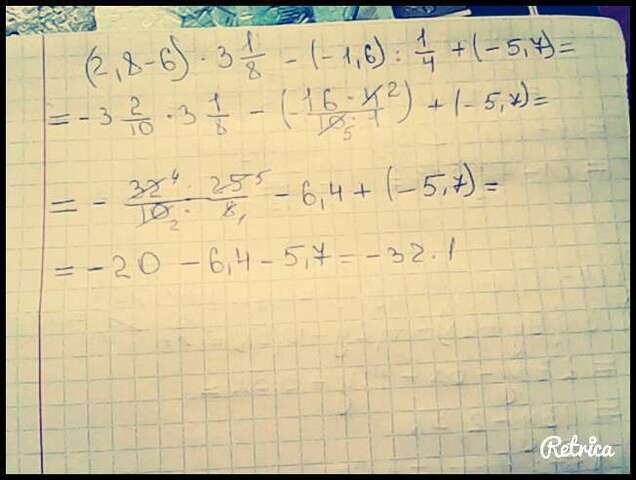 (2,8-6) · 3 1/8 - (-1,6) : 1/4 + (-5,7) =
= -3 2/10 · 3 1/8 - (- 16 · 4 2 / 10 5 · 1) + (-5,7) =
= - 32 4 · 25 5 / 10 2 · 8 1 - 6,4 + (-5,7) =
= -20 - 6,4 - 5,7 = -32.1
Retrica